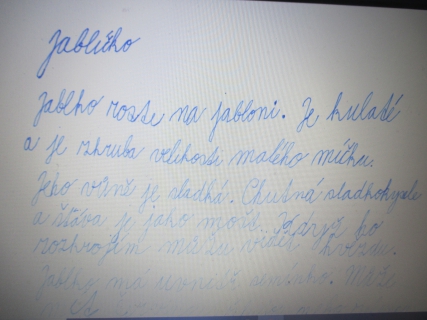 Jablíčko
Jablko roste na jabloni. Je kulaté
a je zhruba velikosti malého míčku.
Jeho vůně je sladká. Chutná sladkokysele
a šťáva je jako moře. Když ho
rozkrojím můžu vidět hvězdu.
Jablko má uvnitř semínko. Může